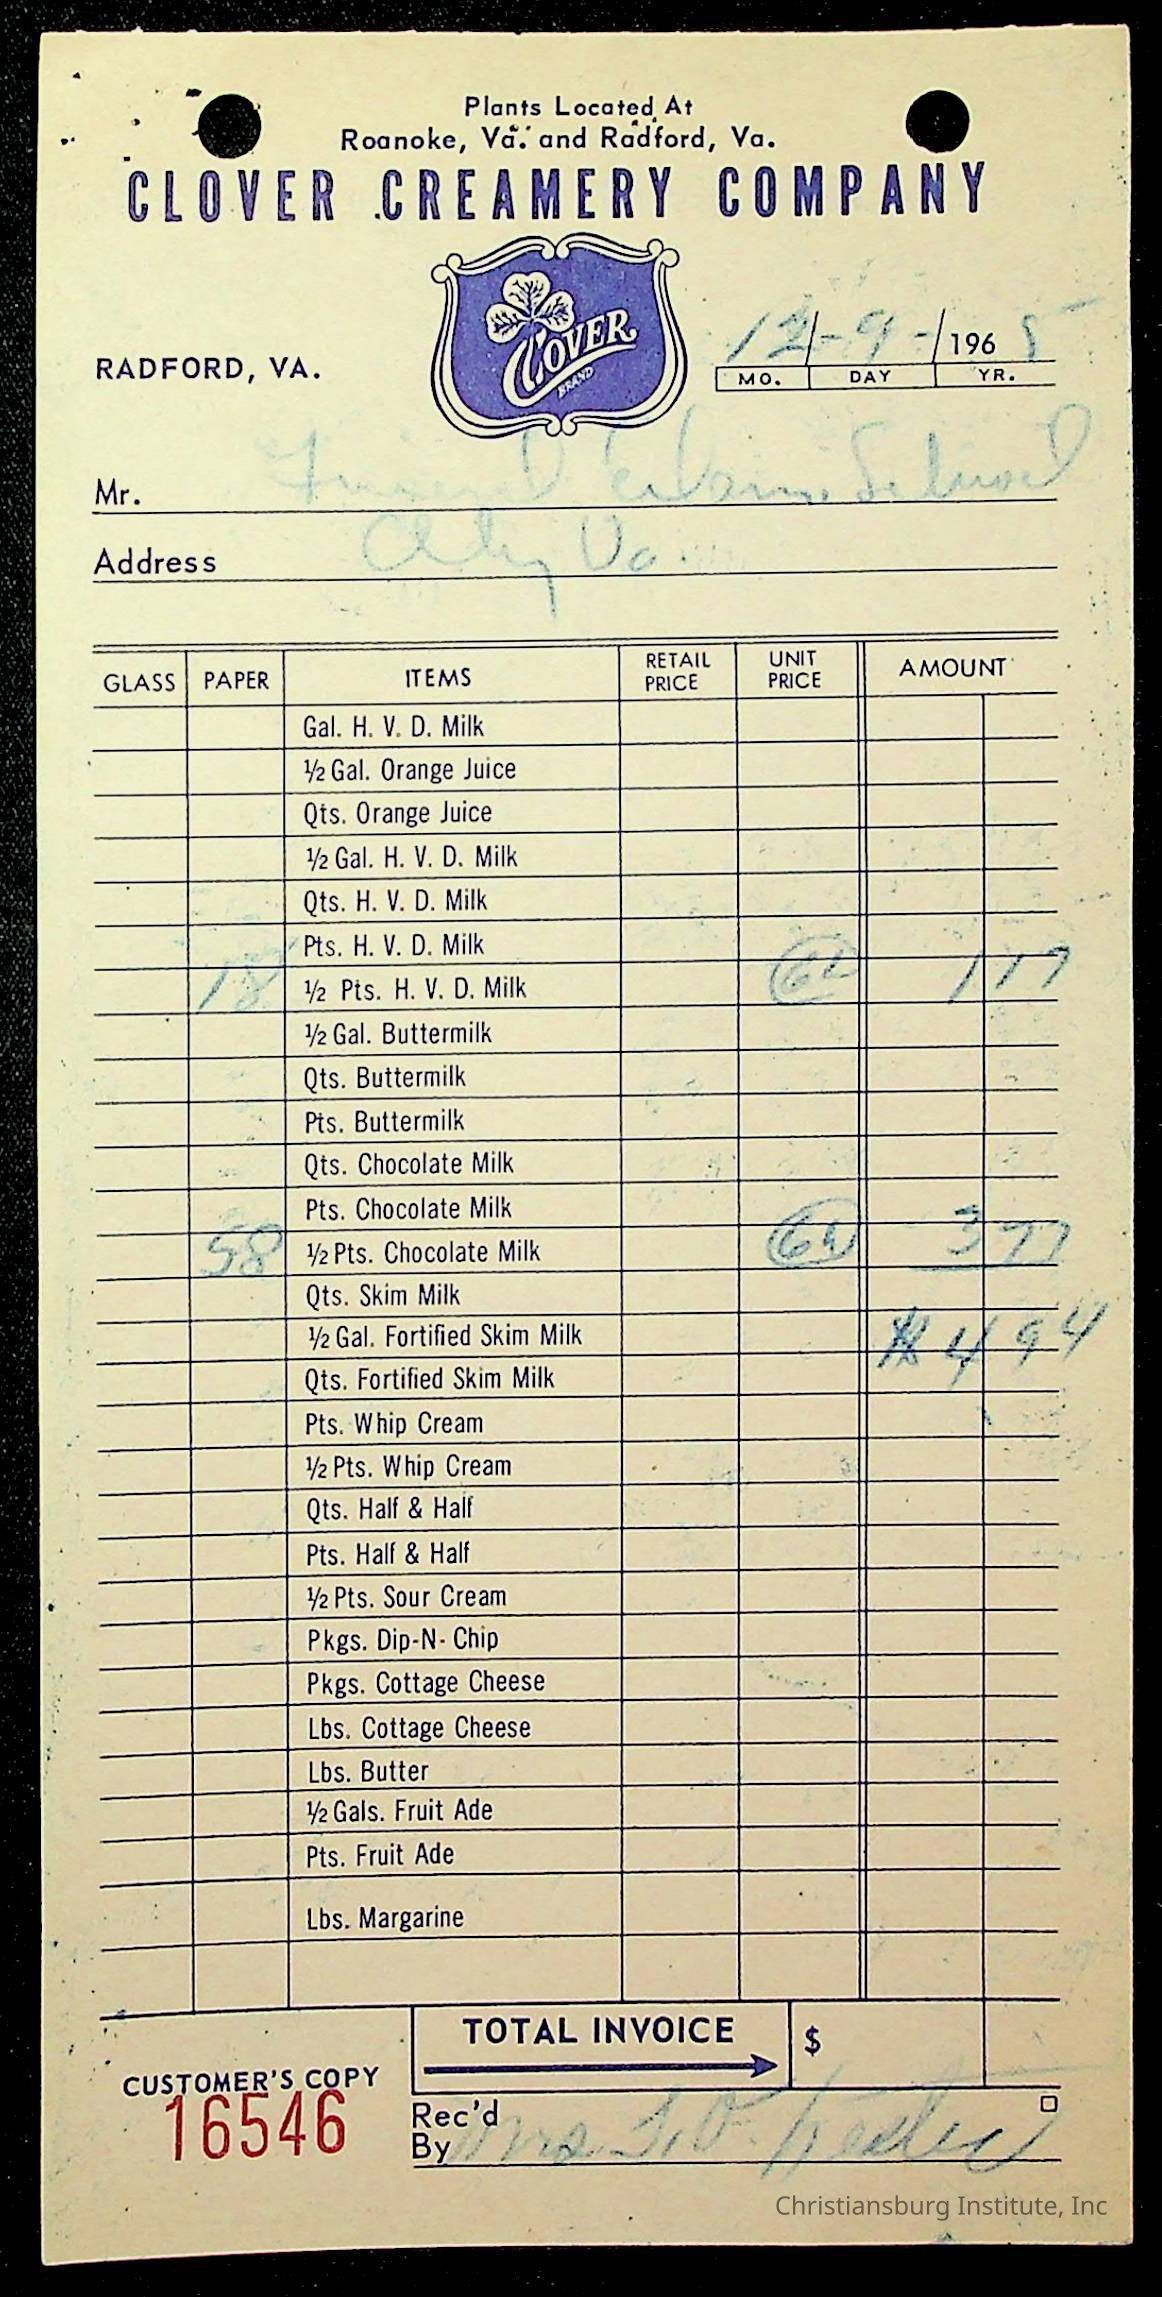 Plants Located At
Roanoke, Va. and Radford, Va.
CLOVER CREAMERY COMPANY
CLOVER
BRAND
RADFORD, VA.
12 - 9 - 1965
MO. DAY YR.
Mr. School
Address Va.
GLASS PAPER ITEMS RETAIL PRICE UNIT PRICE AMOUNT
Gal. H. V. D. Milk
½ Gal. Orange Juice
Qts. Orange Juice
½ Gal. H. V. D. Milk
Qts. H. V. D. Milk
Pts. H. V. D. Milk
18 ½ Pts. H. V. D. Milk 1 17
½ Gal. Buttermilk
Qts. Buttermilk
Pts. Buttermilk
Qts. Chocolate Milk
Pts. Chocolate Milk
58 ½ Pts. Chocolate Milk 3 77
Qts. Skim Milk
½ Gal. Fortified Skim Milk 4 94
Qts. Fortified Skim Milk
Pts. Whip Cream
½ Pts. Whip Cream
Qts. Half & Half
Pts. Half & Half
½ Pts. Sour Cream
Pkgs. Dip-N-Chip
Pkgs. Cottage Cheese
Lbs. Cottage Cheese
Lbs. Butter
½ Gals. Fruit Ade
Pts. Fruit Ade
Lbs. Margarine
TOTAL INVOICE $
CUSTOMER'S COPY
16546
Rec'd
By Mrs
Christiansburg Institute, Inc